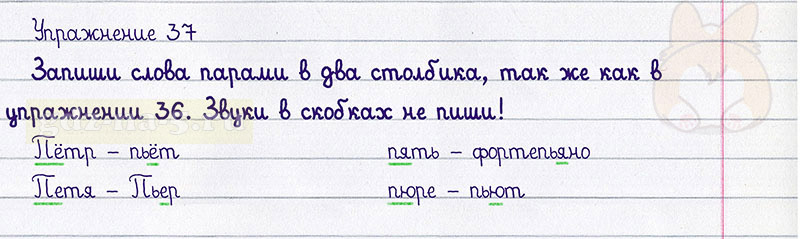 Упражнение 37
Запиши слова парами в два столбика, так же как в
упражнении 36. Звуки в скобках не пиши!
Пётр – пьёт пять – фортепьяно
Петя – Пьер пюре – пьют